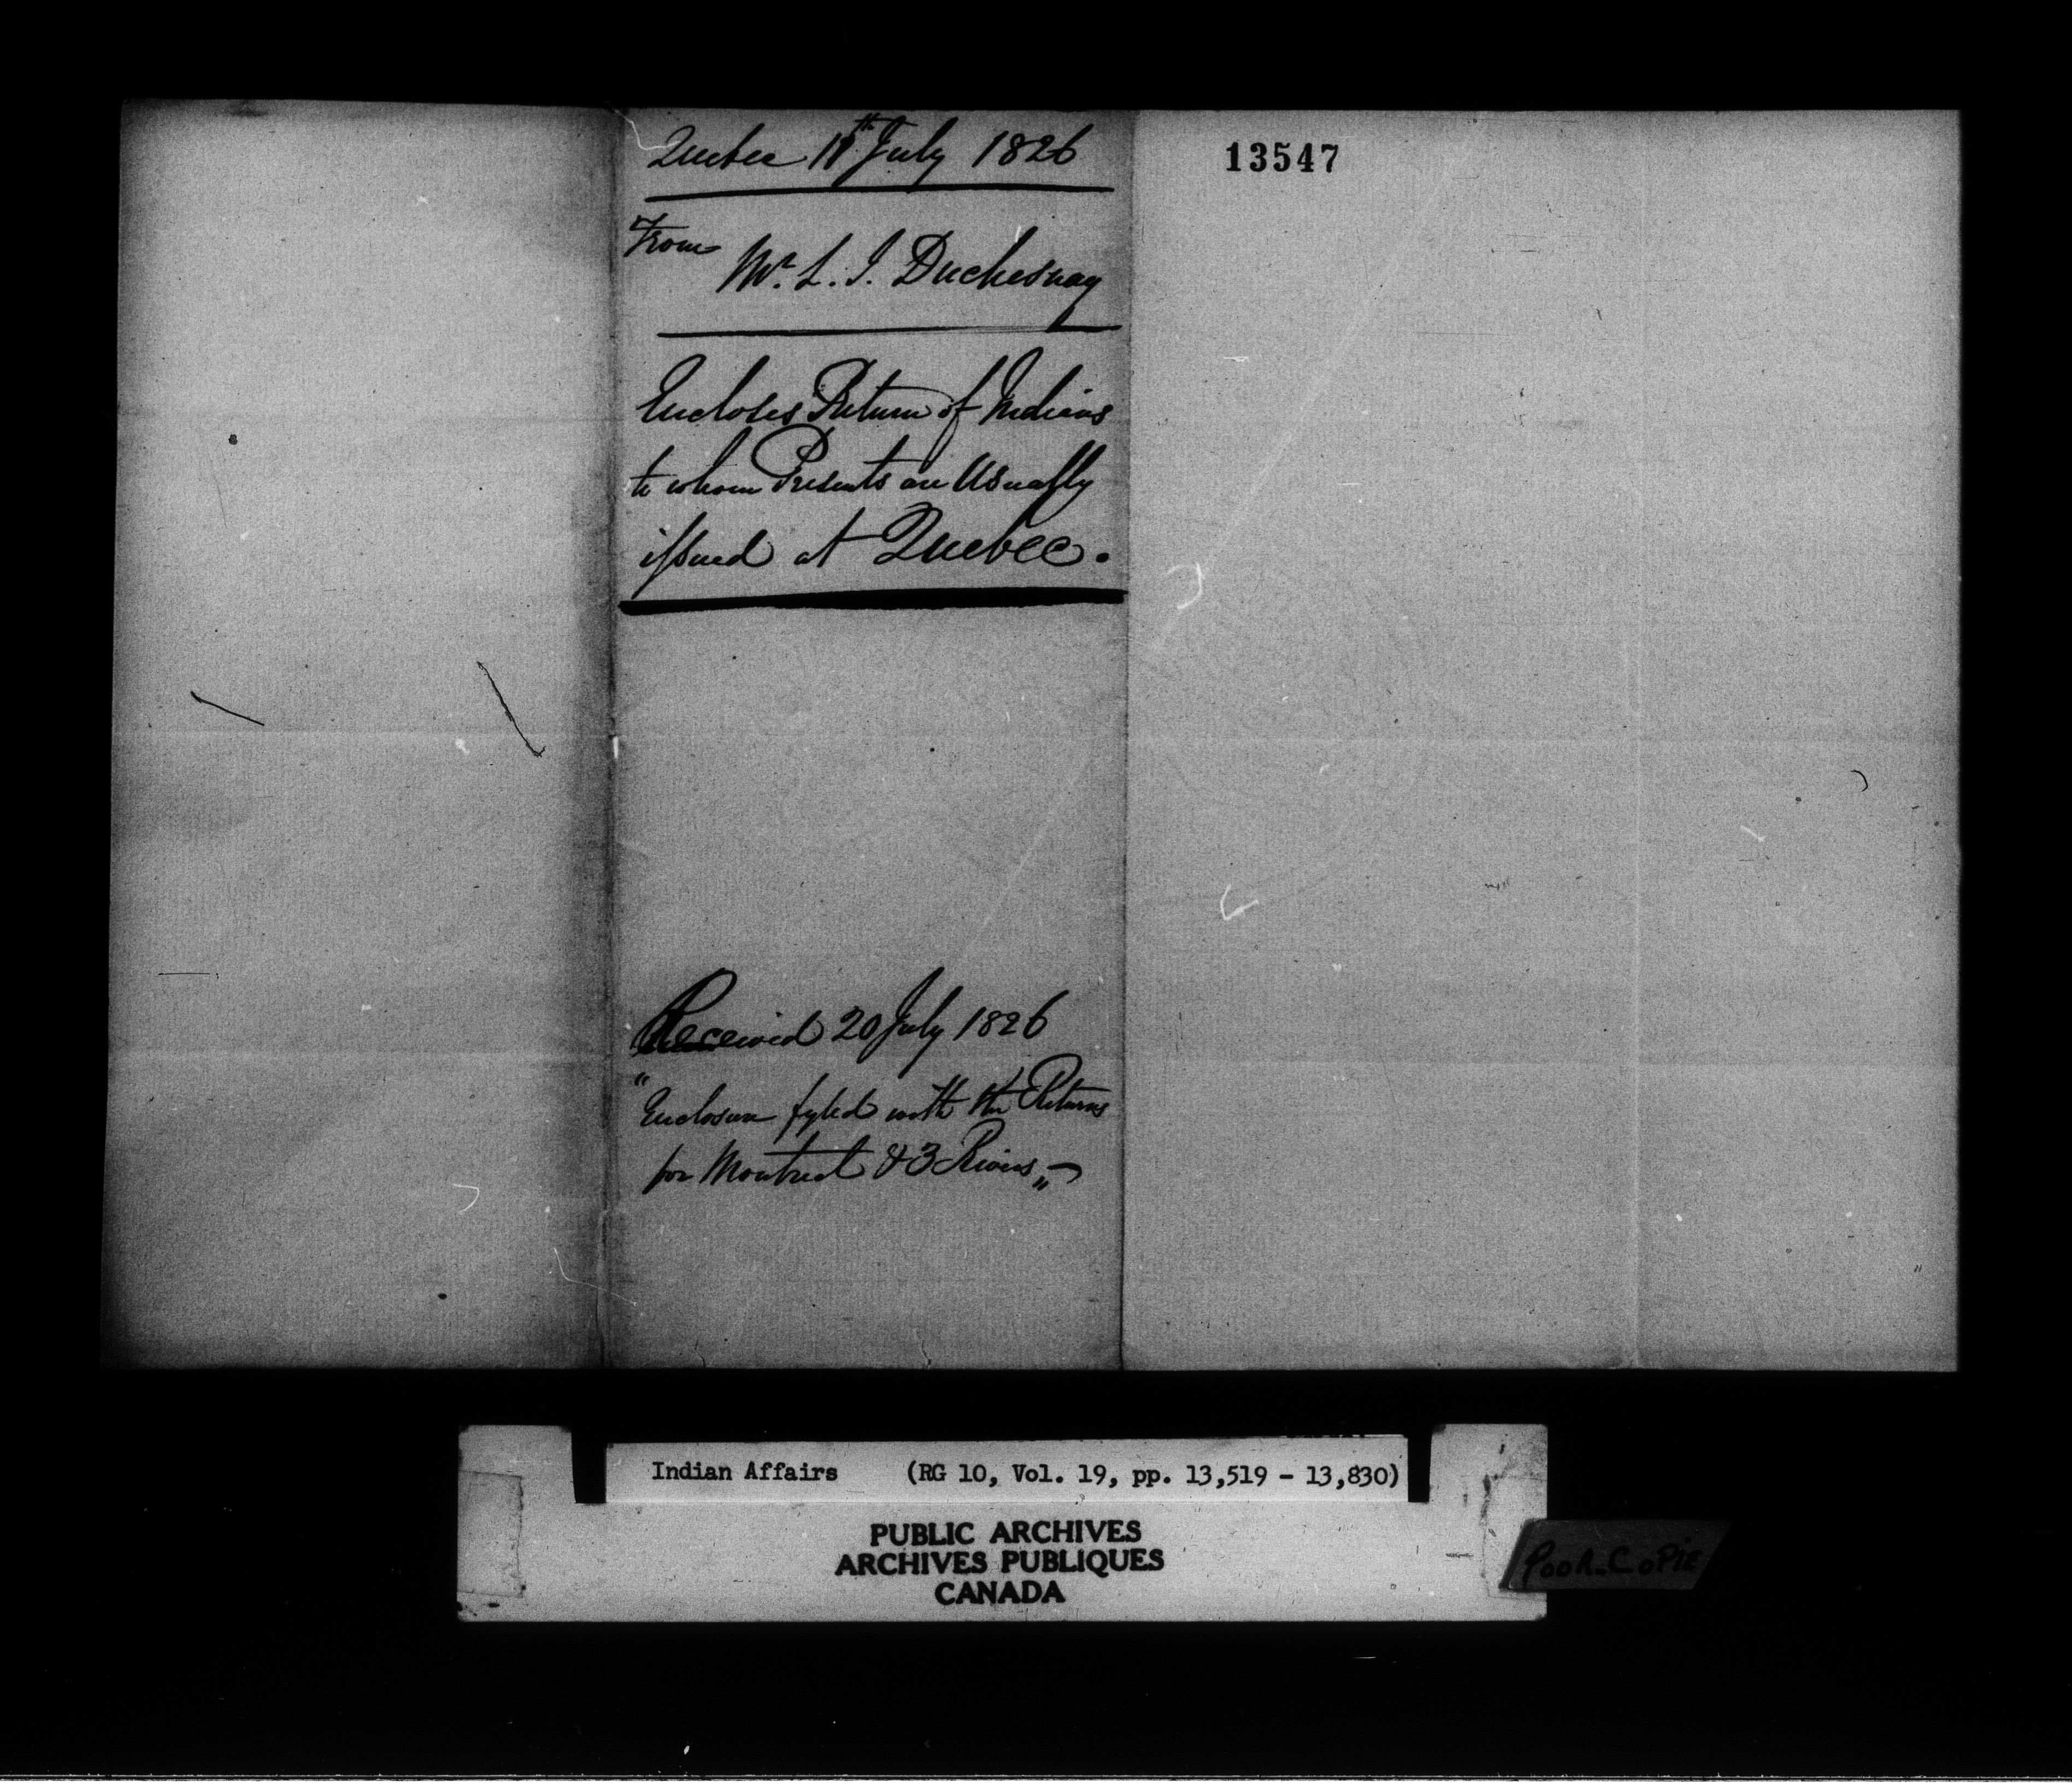 Quebec 11th July 1826
From
Mr. L. I. Duchesnay
Encloses Return of Indians
to whom Presents are Usually
issued at Quebec.
Received 20 July 1826
"Enclosure fyled with the Returns
for Montreal & 3 Rivers"
13547
Indian Affairs (RG 10, Vol. 19, pp. 13,519 - 13,830)
PUBLIC ARCHIVES
ARCHIVES PUBLIQUES
CANADA
POOR COPIE